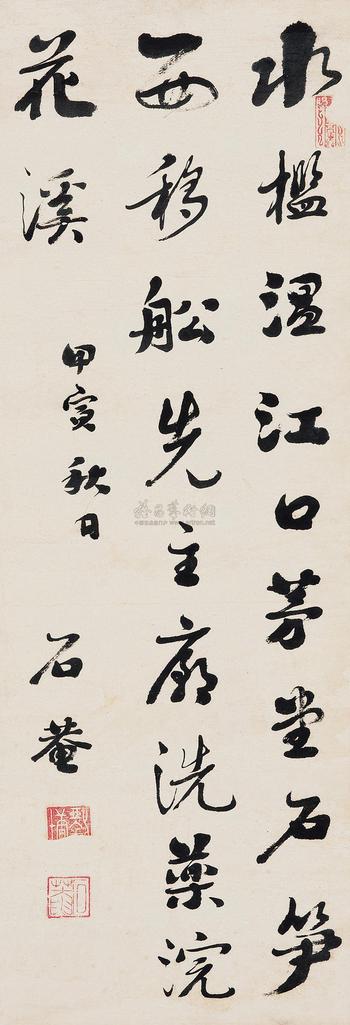 水檻温江口茅堂石笋
西移舩先主廟洗藥浣
花溪
甲寅秋日
石菴
劉墉